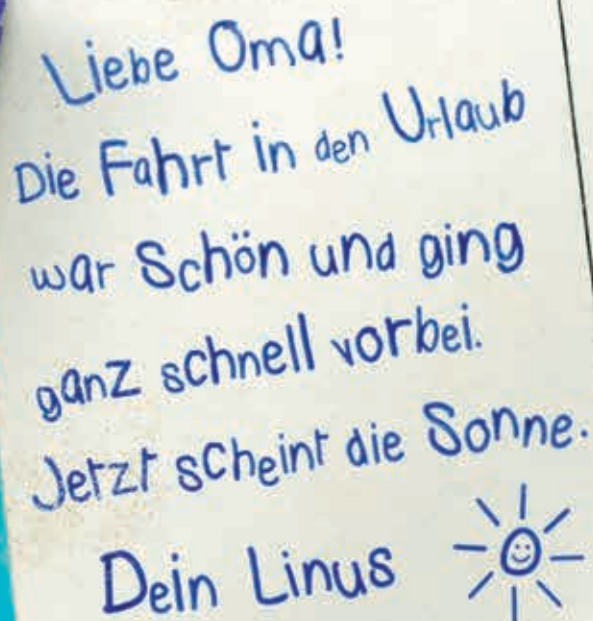 Liebe Oma!
Die Fahrt in den Urlaub
war Schön und ging
ganz schnell vorbei.
Jetzt scheint die Sonne.
Dein Linus